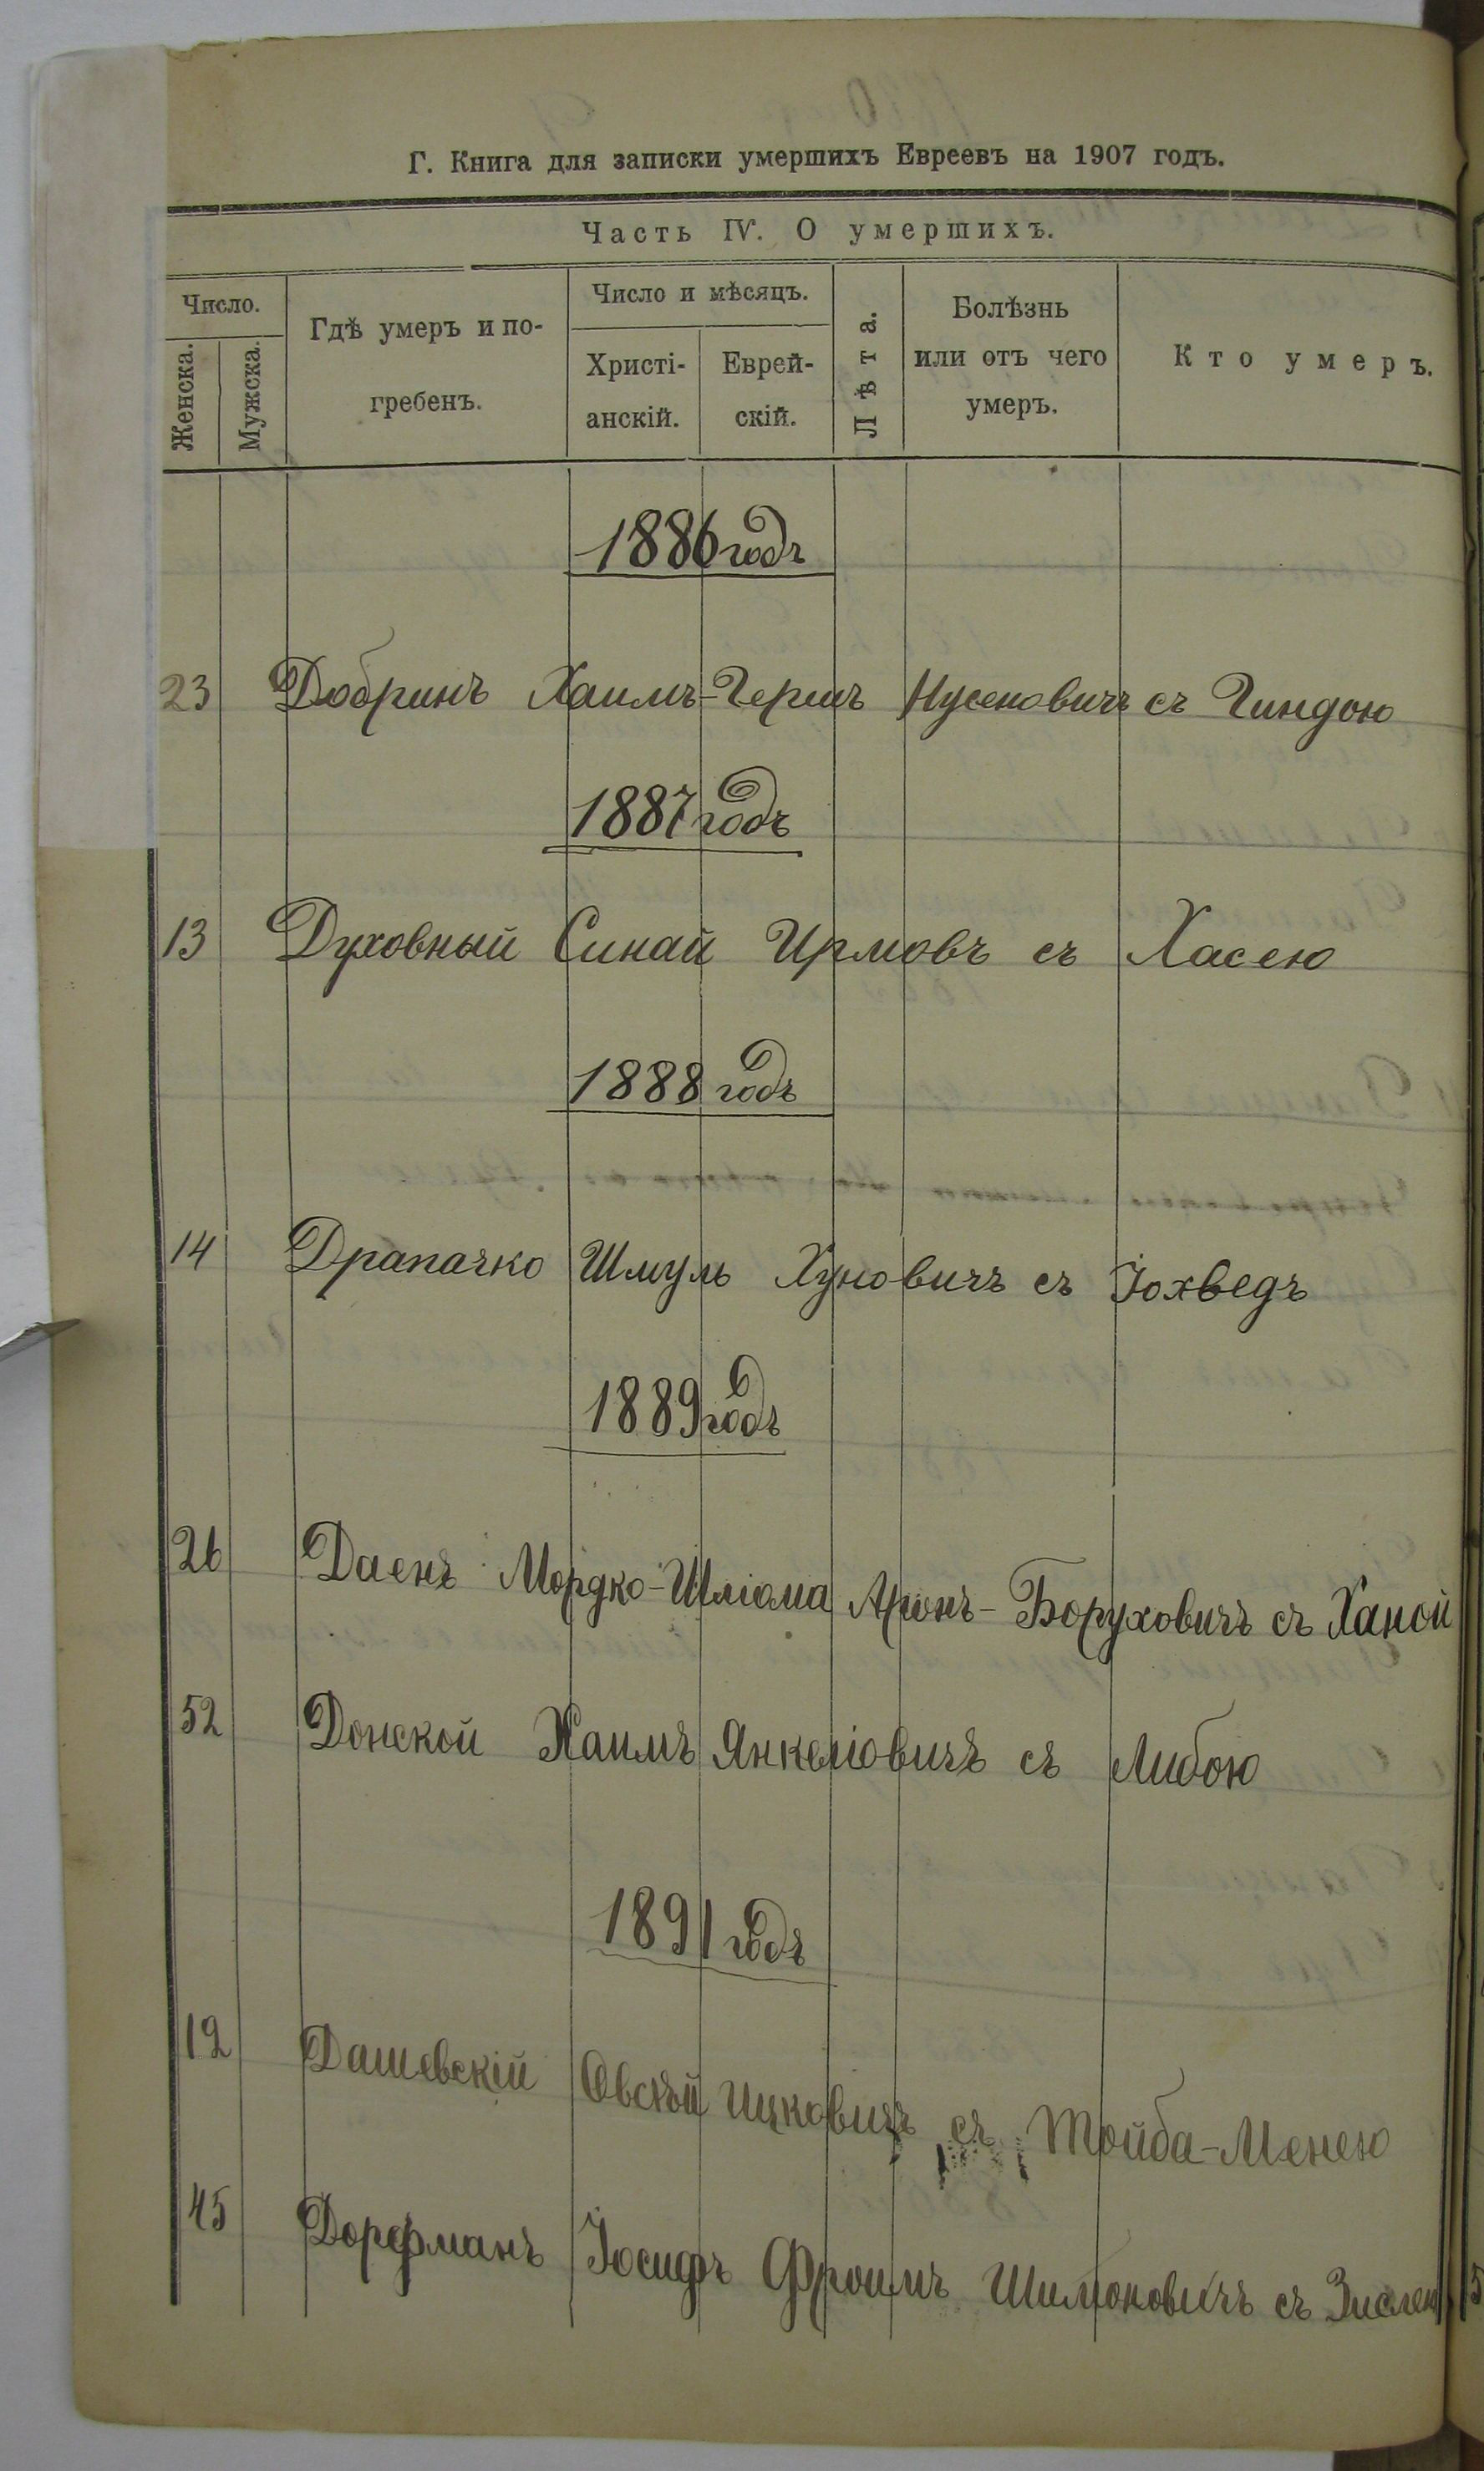 Г. Книга для записки умершихъ Евреевъ на 1907 годъ.
Часть IV. О умершихъ.
Число.
Женска.
Мужска.
Гдѣ умеръ и по-
гребенъ.
Число и мѣсяцъ.
Христі-
анскій.
Еврей-
скій.
Лѣта.
Болѣзнь
или отъ чего
умеръ.
Кто умеръ.
1886 годъ
23 Добринъ Хаимъ-Гершъ Нусеновичъ съ Гиндою
1887 годъ
13 Духовный Синай Ирмовъ съ Хасею
1888 годъ
14 Драпачко Шмуль Хуновичъ съ Іохведъ
1889 годъ
26 Даенъ Мордко-Шліома Аронъ-Боруховичъ съ Ханой
52 Донской Хаимъ Янкеліовичъ съ Либою
1891 годъ
12 Дашевскій Овсѣй Ицковичъ съ Тойба-Менею
45 Дорфманъ Іосифъ Фроимъ Шимоновичъ съ